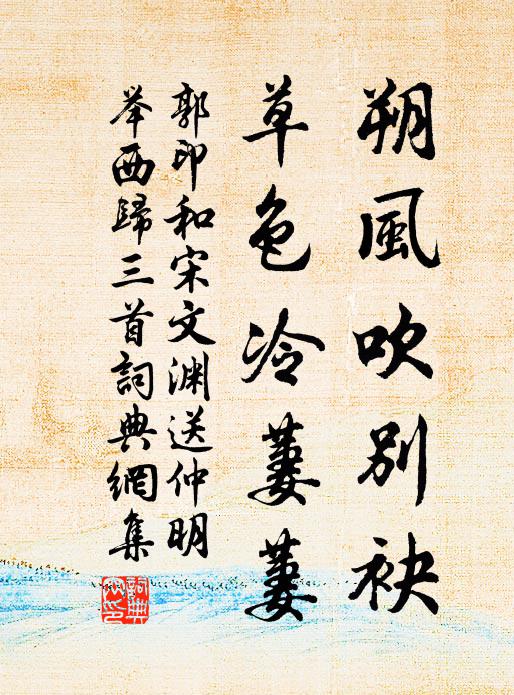 朔風吹別袂
草色冷萋萋
郭印和宋文渊送仲明
举西歸三首詞典網集